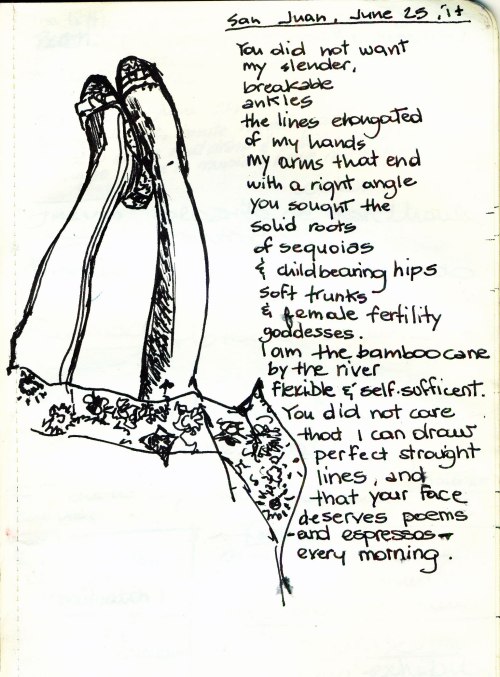 San Juan, June 25, 11
You did not want
my slender,
breakable
ankles
the lines elongated
of my hands
my arms that end
with a right angle
you sought the
solid roots
of sequoias
& childbearing hips
soft trunks
& female fertility
goddesses.
I am the bamboo cane
by the river
flexible & self-sufficent.
You did not care
that I can draw
perfect straight
lines, and
that your face
deserves poems
and espressos
every morning.